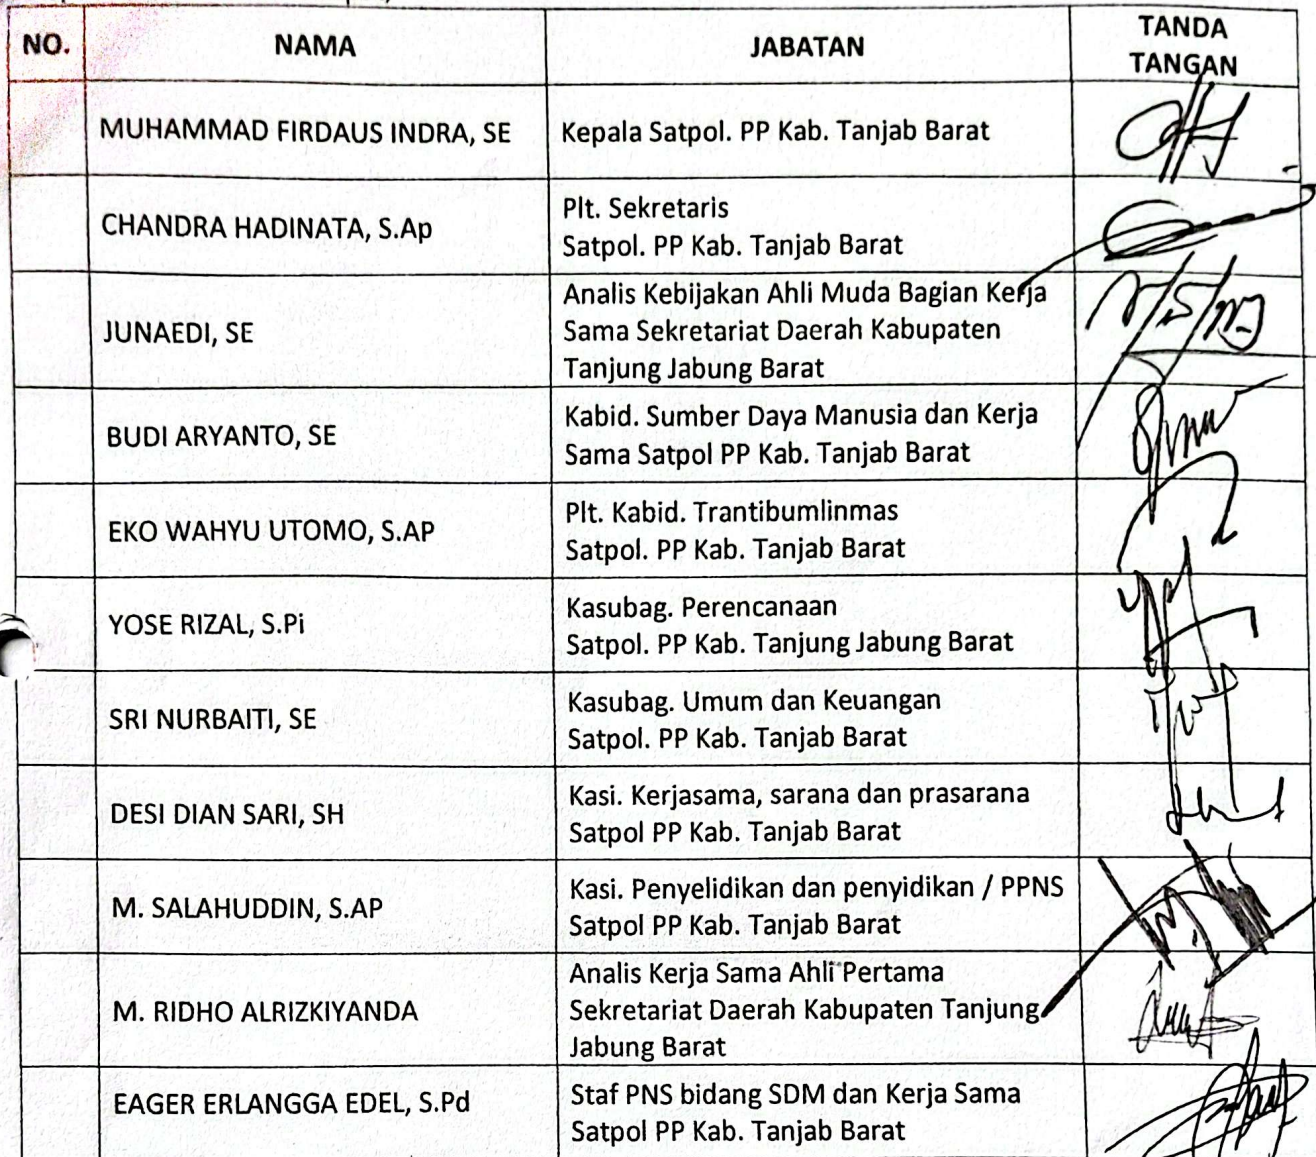 NO.
NAMA
JABATAN
TANDA
TANGAN
MUHAMMAD FIRDAUS INDRA, SE
Kepala Satpol. PP Kab. Tanjab Barat
CHANDRA HADINATA, S.Ap
Plt. Sekretaris
Satpol. PP Kab. Tanjab Barat
JUNAEDI, SE
Analis Kebijakan Ahli Muda Bagian Kerja
Sama Sekretariat Daerah Kabupaten
Tanjung Jabung Barat
BUDI ARYANTO, SE
Kabid. Sumber Daya Manusia dan Kerja
Sama Satpol PP Kab. Tanjab Barat
EKO WAHYU UTOMO, S.AP
Plt. Kabid. Trantibumlinmas
Satpol. PP Kab. Tanjab Barat
YOSE RIZAL, S.Pi
Kasubag. Perencanaan
Satpol. PP Kab. Tanjung Jabung Barat
SRI NURBAITI, SE
Kasubag. Umum dan Keuangan
Satpol. PP Kab. Tanjab Barat
DESI DIAN SARI, SH
Kasi. Kerjasama, sarana dan prasarana
Satpol PP Kab. Tanjab Barat
M. SALAHUDDIN, S.AP
Kasi. Penyelidikan dan penyidikan / PPNS
Satpol PP Kab. Tanjab Barat
M. RIDHO ALRIZKIYANDA
Analis Kerja Sama Ahli Pertama
Sekretariat Daerah Kabupaten Tanjung
Jabung Barat
EAGER ERLANGGA EDEL, S.Pd
Staf PNS bidang SDM dan Kerja Sama
Satpol PP Kab. Tanjab Barat